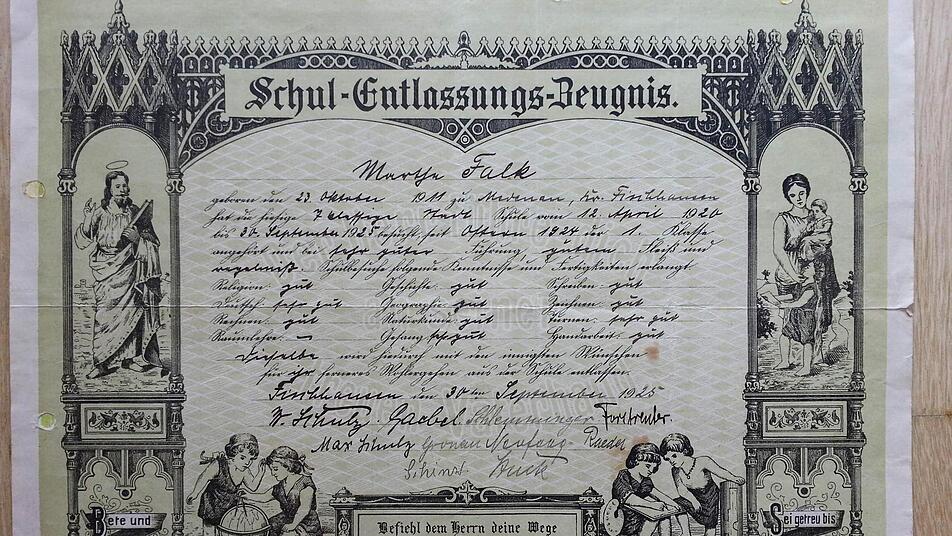 Schul-Entlassungs-Zeugnis.
Martha Falk
geboren den 23. Oktober 1911 zu Medenau, Kr. Fischhausen
hat die hiesige 7 klassige Stadt Schule vom 12. April 1920
bis 30. September 1925 besucht, seit Ostern 1924 der 1. Klasse
angehört und bei sehr guter Führung, gutem Fleiß und
regelmäß. Schulbesuche folgende Kenntnisse und Fertigkeiten erlangt.
Religion: gut Geschichte: gut Schreiben: gut
Deutsch: sehr gut Geographie: gut Zeichnen: gut
Rechnen: gut Naturkunde: gut Turnen: sehr gut
Raumlehre: — Gesang: sehr gut Handarbeit: gut
Dieselbe wird hierdurch mit den innigsten Wünschen
für ihr ferneres Wohlergehen aus der Schule entlassen.
Fischhausen den 30ten September 1925
W. Schulz Gaebel
Max Schulz Gronau Raeder
Huck
Bete und
Befiehl dem Herrn deine Wege
Sei getreu bis